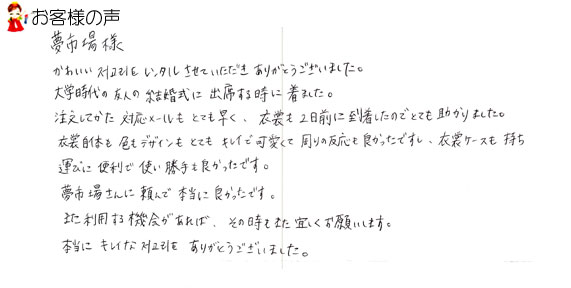 お客様の声
夢市場様
かわいい저고리をレンタルさせていただきありがとうございました。
大学時代の友人の結婚式に出席する時に着ました。
注文してから対応メールもとても早く、衣裳も2日前に到着したのでとても助かりました。
衣裳自体も色もデザインもとてもキレイで可愛くて周りの反応も良かったですし、衣裳ケースも持ち
運びに便利で使い勝手も良かったです。
夢市場さんに頼んで本当に良かったです。
また利用する機会があれば、その時もまた宜しくお願いします。
本当にキレイな저고리をありがとうございました。